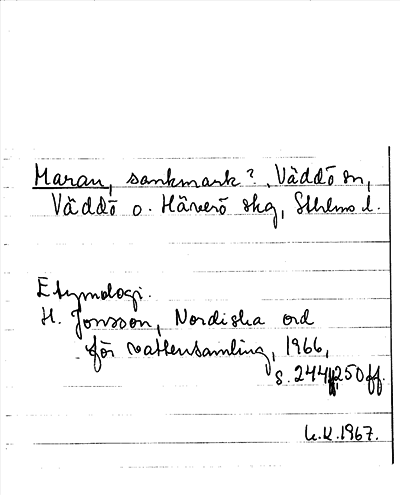 Maran, sankmark?, Väddö sn,
Väddö o. Häverö skg, Sthlms l.
Etymologi.
H. Jonsson, Nordiska ord
för vattensamling, 1966,
s. 244, 250 ff.
1967.